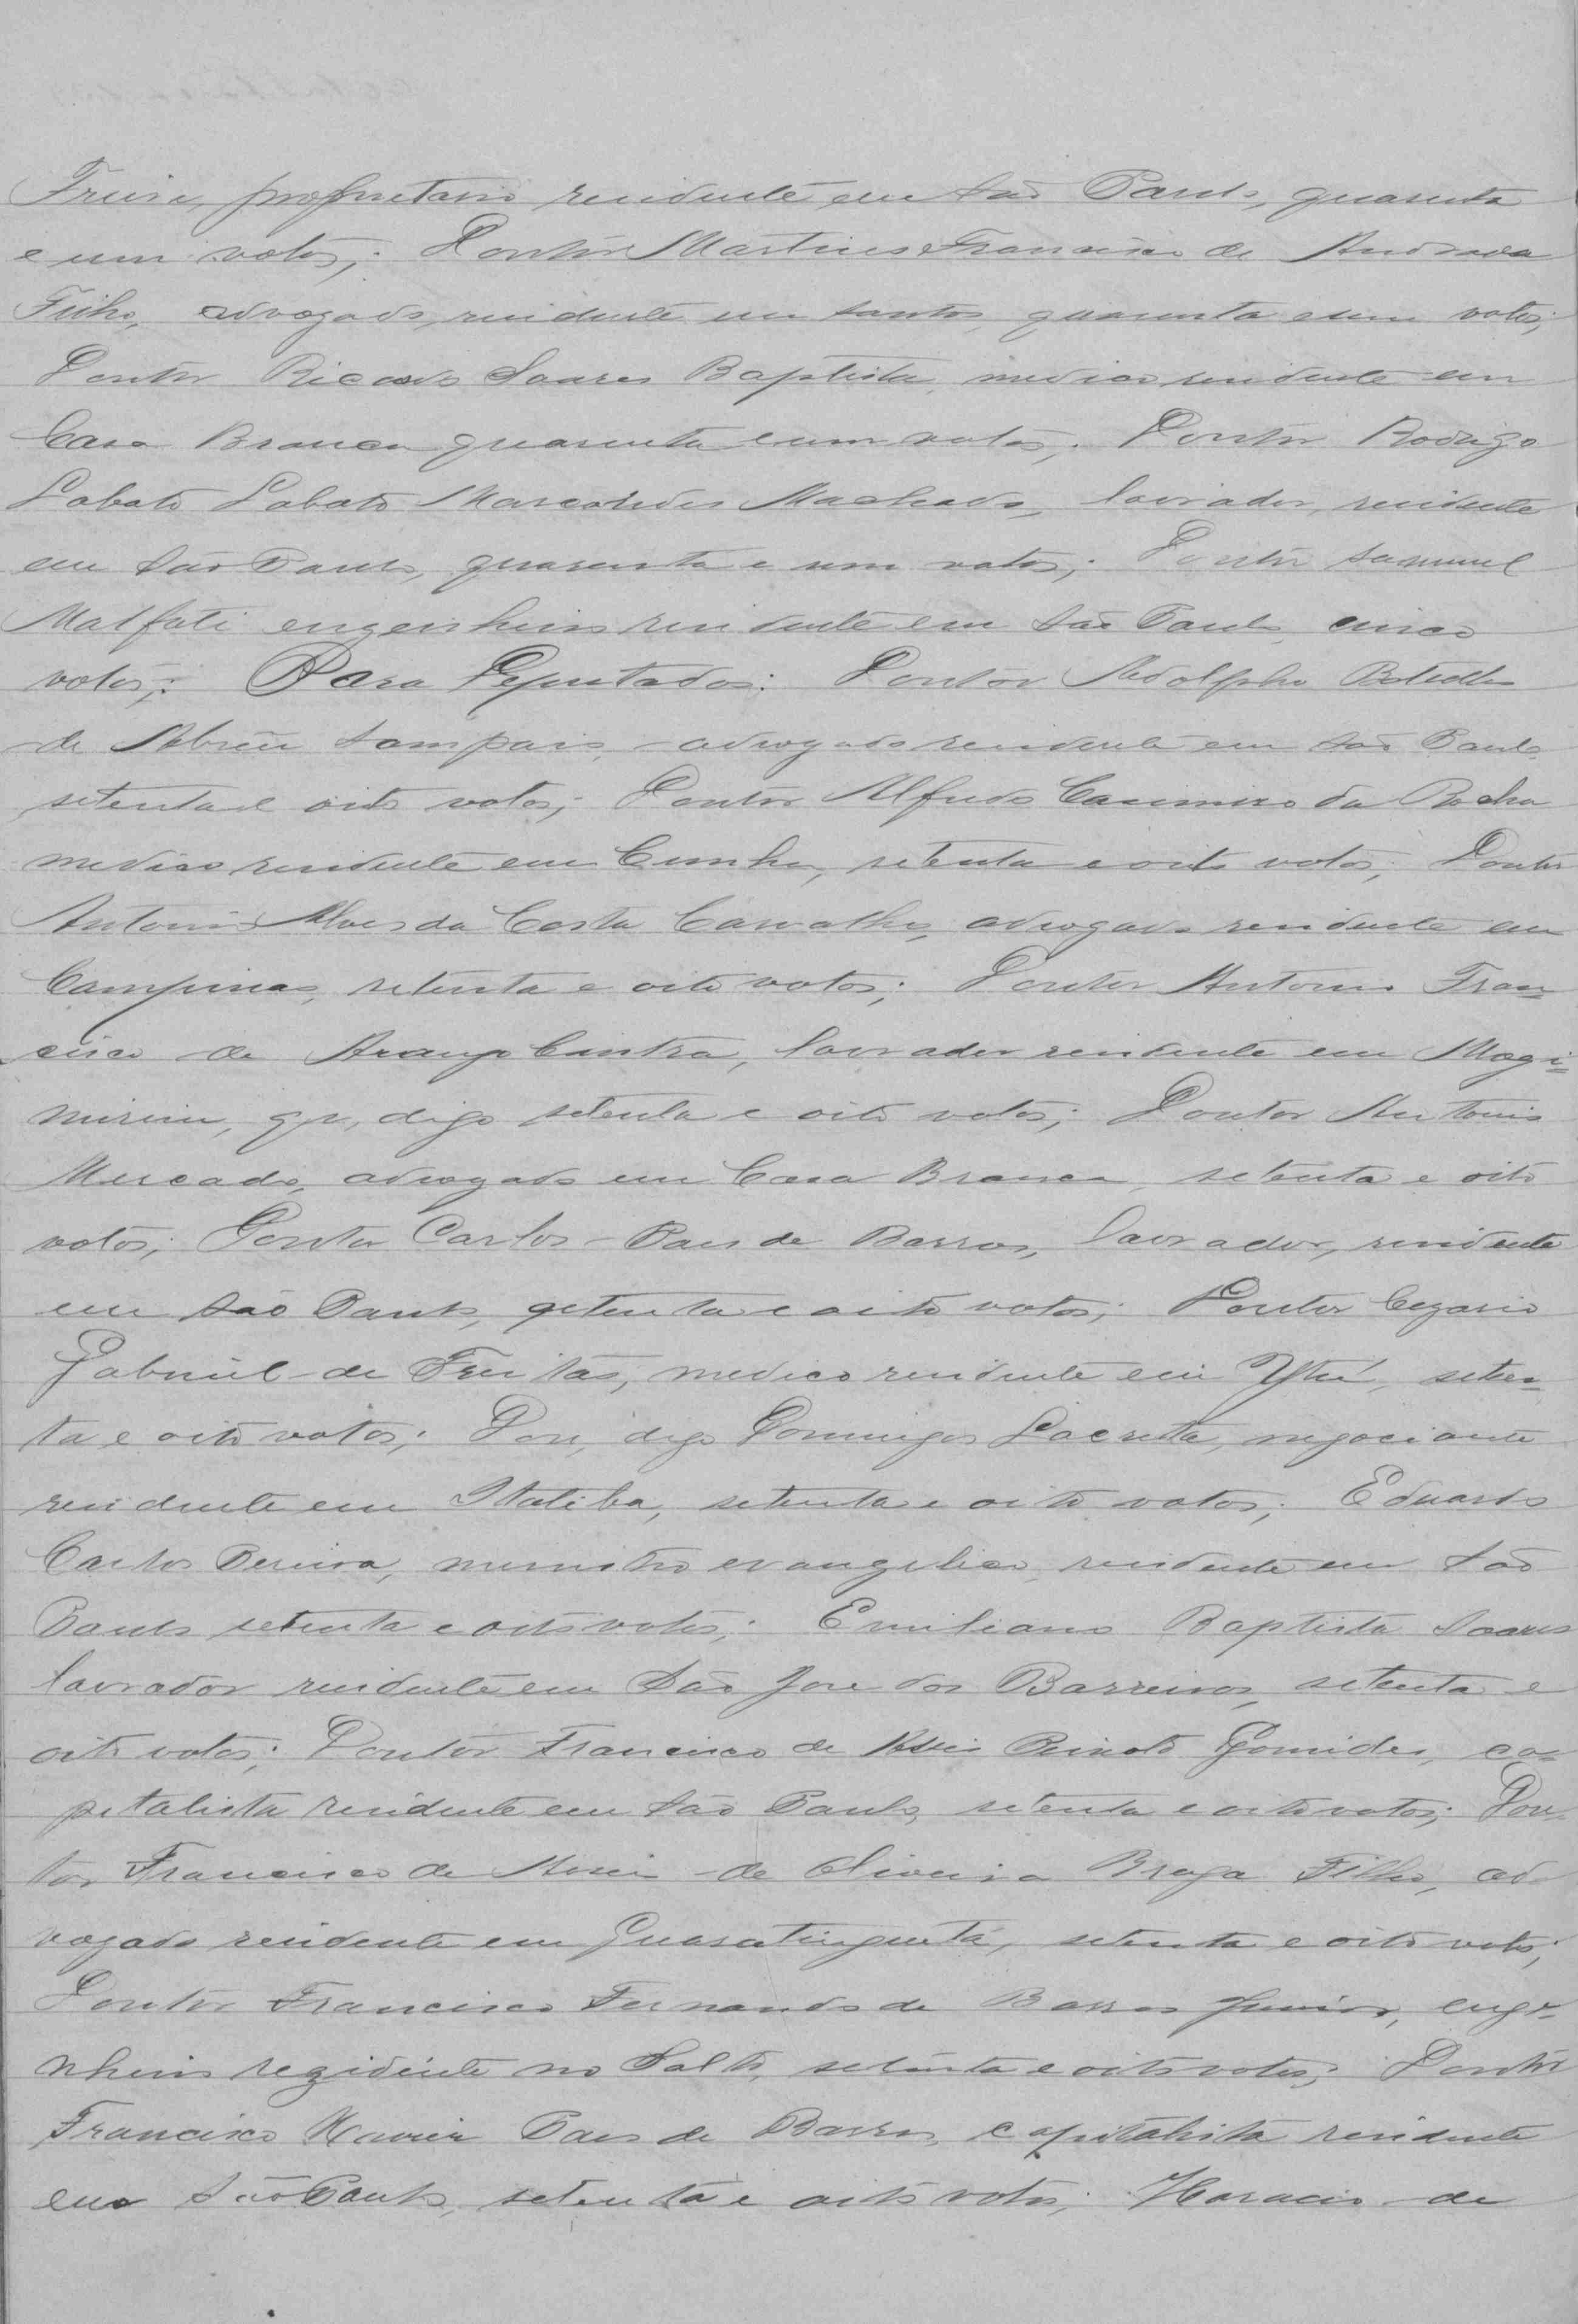 Freire, proprietario residente em São Paulo, quarenta
e um votos; Doutor Martins Francisco de Andrada
Filho, advogado, residente em Santos, quarenta e um votos;
Doutor Ricardo Soares Baptista, medico residente em
Casa Branca quarenta e um votos; Doutor Rodrigo
Lobato Lobato Marcondes Machado, lavrador, residente
em São Paulo, quarenta e um votos; Doutor Samuel
Malfati engenheiro residente em São Paulo cinco
votos; Para Deputados: Doutor Adolpho Botelho
de Abreu Sampaio, advogado residente em São Paulo
setenta e oito votos; Doutor Alfredo Casemiro da Rocha
medico residente em Cunha, setenta e oito votos; Doutor
Antonio Alves da Costa Carvalho, advogado residente em
Campinas, setenta e oito votos; Doutor Antonio Fran-
cisco de Araujo Cintra, lavrador residente em Mogi=
mirim, qr, digo setenta e oito votos; Doutor Antonio
Mercado, advogado em Casa Branca, setenta e oito
votos; Doutor Carlos Paes de Barros, lavrador, residente
em São Paulo, setenta e oito votos; Doutor Cezario
Gabriel de Freitas, medico residente em Ytú, seten=
ta e oito votos; Dou, digo Domingos Lacreta, negociante
residente em Itatiba, setenta e oito votos; Eduardo
Carlos Pereira, ministro evangelico, residente em São
Paulo setenta e oito votos; Emiliano Baptista Soares
lavrador residente em São Jose dos Barreiros, setenta e
oito votos; Doutor Francisco de Assis Peixoto Gomides, ca=
pitalista residente em São Paulo, setenta e oito votos; Dou-
tor Francisco de Assis de Oliveira Braga Filho, ad
vogado residente em Guaratinguetá, setenta e oito votos;
Doutor Francisco Fernando de Barros Junior, enge-
nheiro rezidente no Salto, setenta e oito votos; Doutor
Francisco Xavier Paes de Barros, capitalista residente
em São Paulo, setenta e oito votos; Horacio de